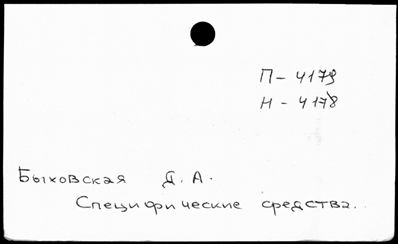 П - 4179
Н - 4178
Быховская Д. А.
Специфические средства..